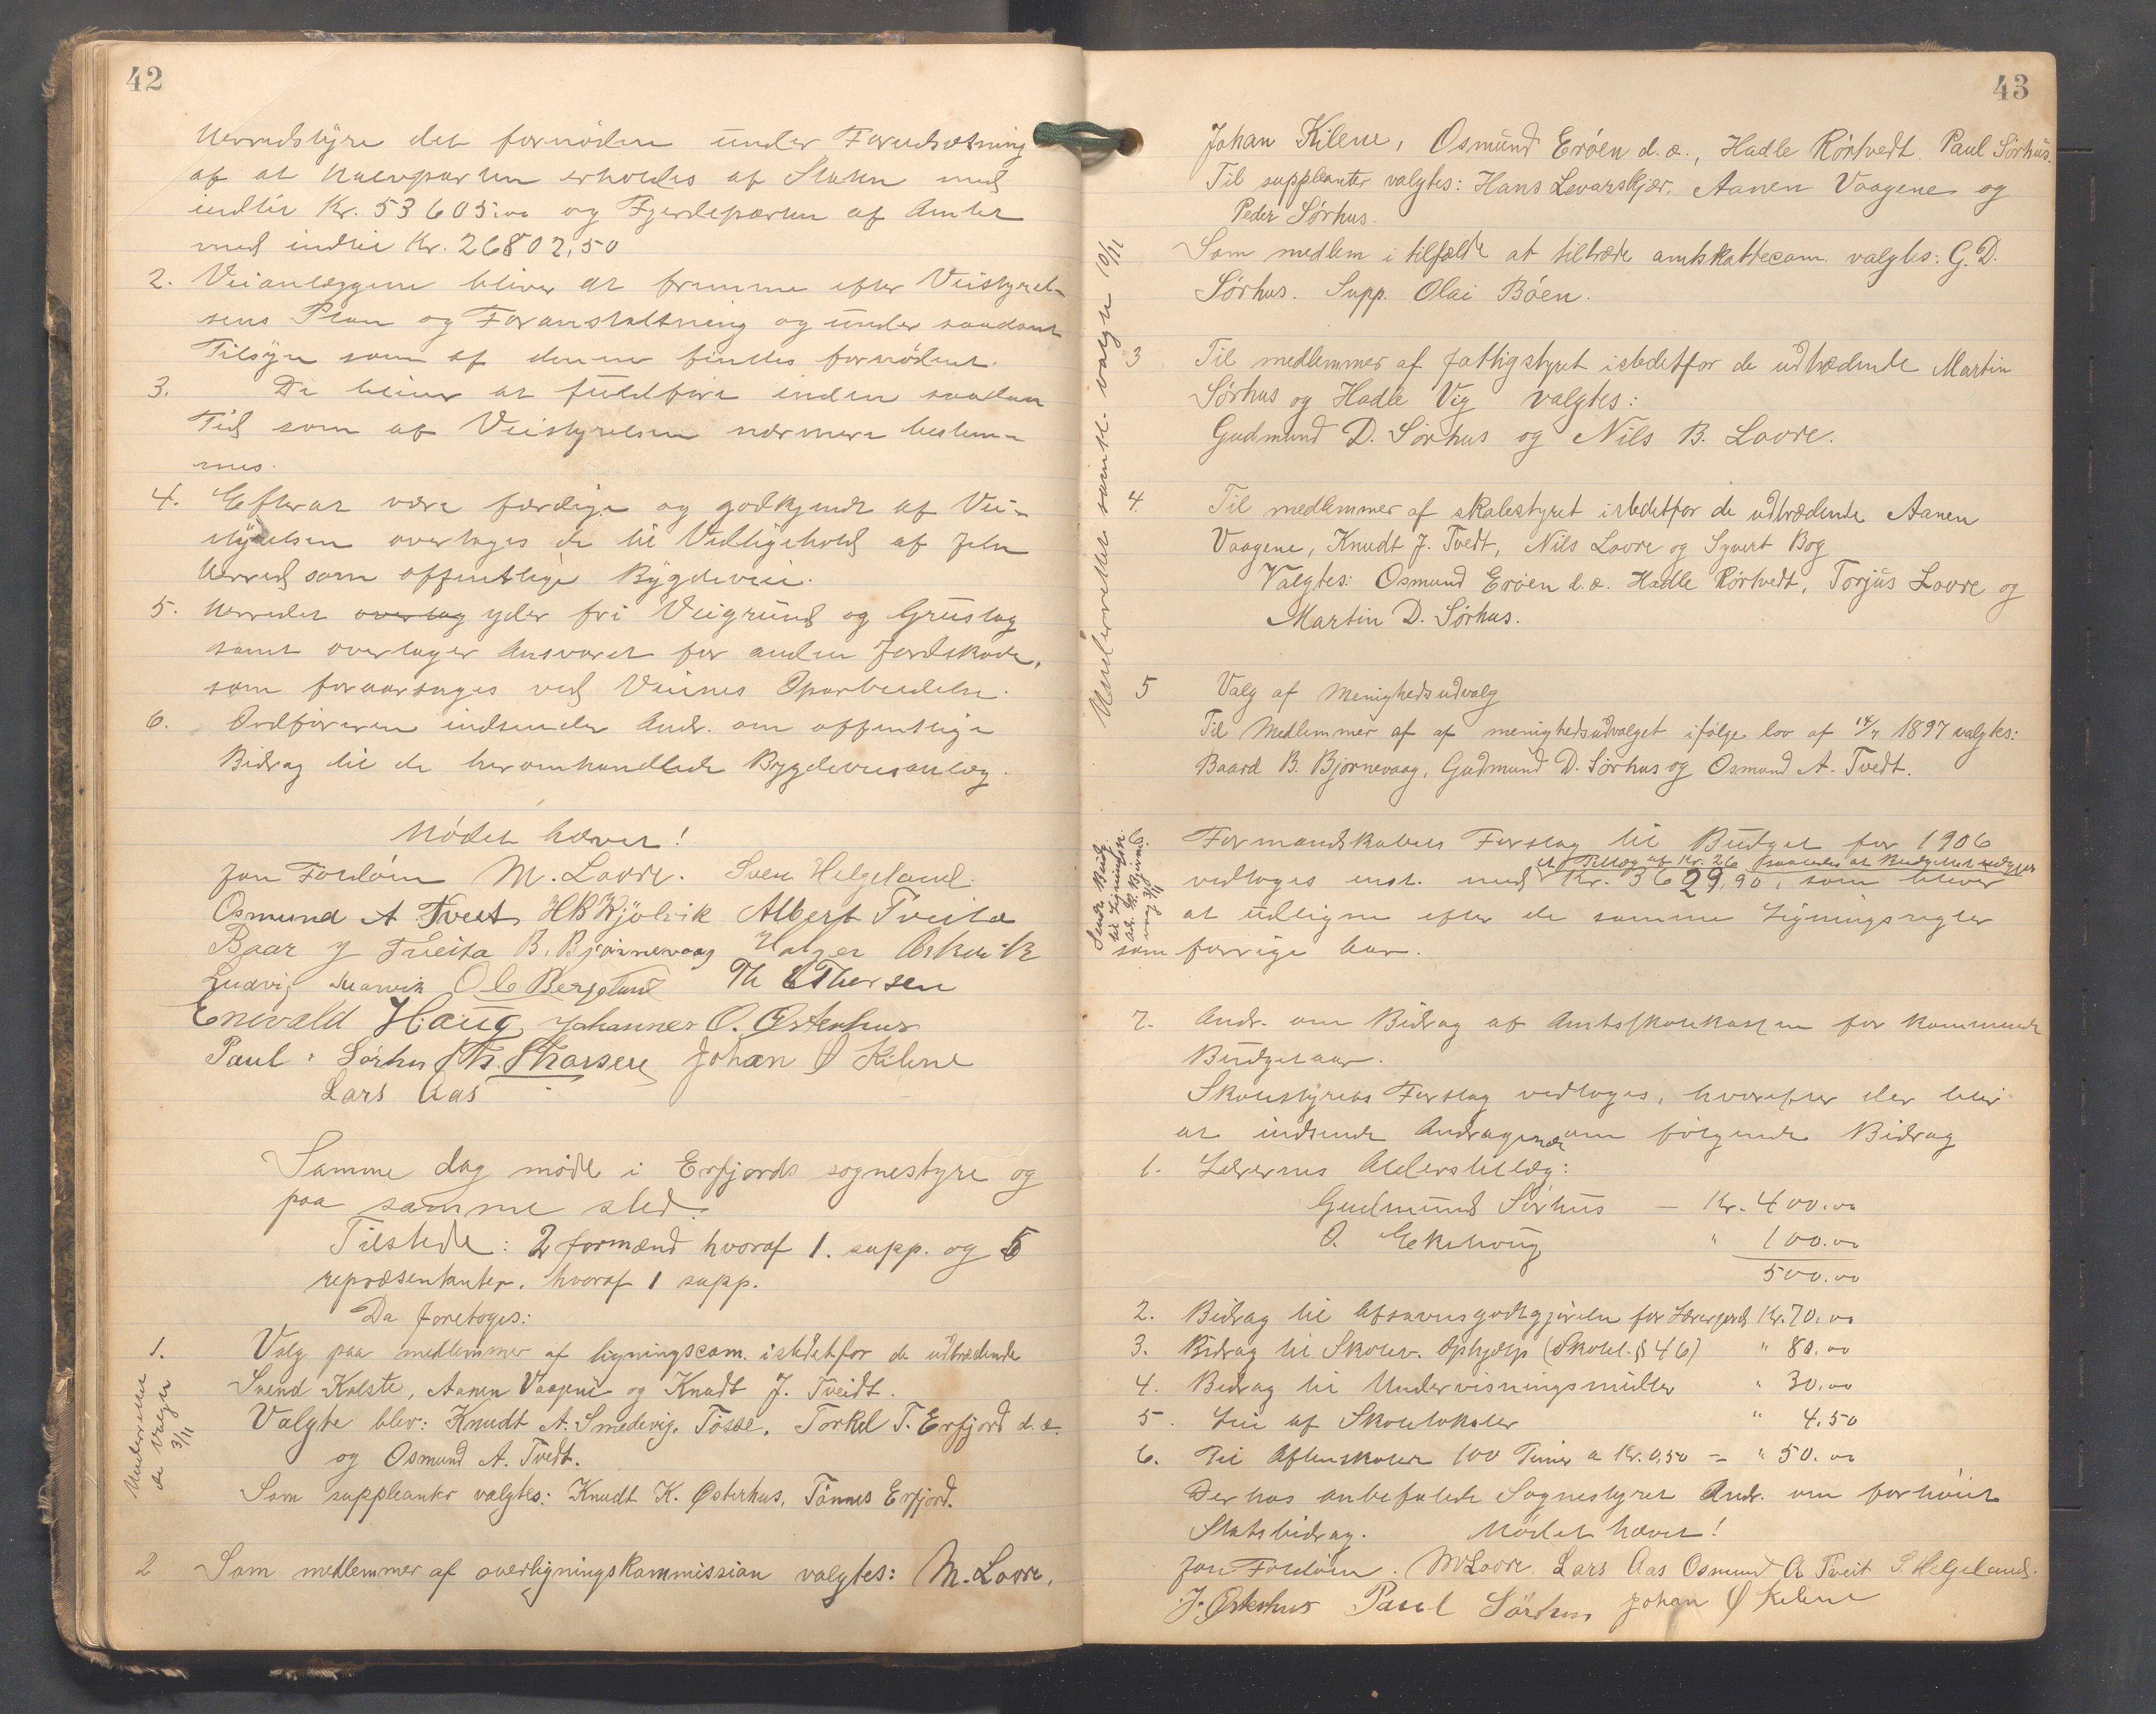 42
Herredstyre det fornødne under Forudsætning
af at Halvparten erholdes af Staten med
indtil Kr. 53605.00 og Fjerdeparten af Amtet
med indtil Kr. 26802,50
2. Veianlæggene bliver at fremme efter Veistyrel-
sens Plan og Foranstaltning og under saadant
Tilsyn som af denne findes fornødent.
3. De bliver at fuldføre inden saadan
Tid som af Veistyrelsen nærmere bestem-
mes.
4. Efterat være færdige og godkjendt af Vei-
styrelsen overtages de til Vedligehold af Jelse
Herred som offentlige Bygdeveie.
5. Herredet overtag yder fri Veigrund og Grustag
samt overtager Ansvaret for anden Jordskade,
som foraarsages ved Veienes Oparbeidelse.
6. Ordføreren indsender Andr. om offentlige
Bidrag til de heromhandlede Bygdeveisanlæg.
Mødet hævet!
Jon Foldøen M. Lovre. Sven Helgeland.
Osmund A Tveit H B Hjølvik Albert Tveita
Baar J Tveita B. Bjørnevaag Halger Askvik
Ludvig Marvik O C Bergeland Th E Thorsen
Enevald Haug, Johannes O. Østerhus
Paul Sørhus Th. Thorsen Johan Ø Kilene
Lars Aas
Samme dag møde i Erfjords sognestyre og
paa samme sted.
Tilstede: 2 formænd hvoraf 1. supp. og 5
repræsentanter. hvoraf 1 supp.
Da foretoges:
1. Valg paa medlemmer af ligningscom. istedetfor de udtrædende
Svend Kolste, Aanen Vaagene og Knudt J. Tveidt.
Valgte blev: Knudt A. Smedevig, Tosse, Torkel T. Erfjord d.æ.
og Osmund A. Tvedt.
Som suppleanter valgtes: Knudt K. Østerhus, Tønnes Erfjord.
Underrettet
de Valgte
3/11
2 Som medlemmer af overligningskommission valgtes: M. Lovre,
43
Johan Kilene, Osmund Erøen d.æ., Hadle Rørtvedt. Paul Sørhus.
Til suppleanter valgtes: Hans Levarskjær, Aanen Vaagene og
Peder Sørhus.
Som medlem i tilfælde at tiltræde amtskattecom. valgtes: G. D.
Sørhus. Supp. Olai Bøen.
3 Til medlemmer af fattigstyret istedetfor de udtrædende Martin
Sørhus og Hadle Vig valgtes:
Gudmund D. Sørhus og Nils B. Lovre.
4. Til medlemmer af skolestyret istedetfor de udtrædende Aanen
Vaagene, Knudt J. Tvedt, Nils Lovre og Syvert Bog
Valgtes: Osmund Erøen d.æ. Hadle Rørtvedt, Torjus Lovre og
Martin D. Sørhus.
Underrettet samtl. valgte 10/11
5 Valg af Menighedsudvalg
Til Medlemmer af af menighedsudvalget ifølge lov af 14/7 1897 valgtes:
Baard B. Bjørnevaag, Gudmund D. Sørhus og Osmund A. Tvedt.
6. Formandskabets Forslag til Budget for 1906
et Tillæg af Kr. 26 saaledes at Budgettet udgjør
vedtoges enst. med Kr. 3629,90, som bliver
at udligne efter de samme Ligningsregler
som forrige Aar.
7. Andr. om Bidrag af Amtsskolekassen for kommende
Budgetaar.
Skolestyrets Forslag vedtoges, hvorefter der blir
at indsende Andragende om følgende Bidrag
1. Lærernes Alderstillæg:
Gudmund Sørhus — Kr. 400.00
O. Ekehaug " 100.00
500.00
2. Bidrag til Afsavnsgodtgjørelse for Lærerjord Kr. 70.00
3. Bidrag til Skolev. Ophjælp (Skolel. § 46) " 80.00
4. Bidrag til Undervisningsmidler " 30.00
5. Leie af Skolelokaler " 4.50
6. Til Aftenskoler 100 Timer a Kr. 0,50 = " 50.00
Derhos anbefalede Sognestyret Andr. om forhøiet
Statsbidrag. Mødet hævet!
Jon Foldøen. M Lovre. Lars Aas Osmund A Tveit S. Helgeland.
J. Østerhus Paul Sörhus Johan Ø Kilene